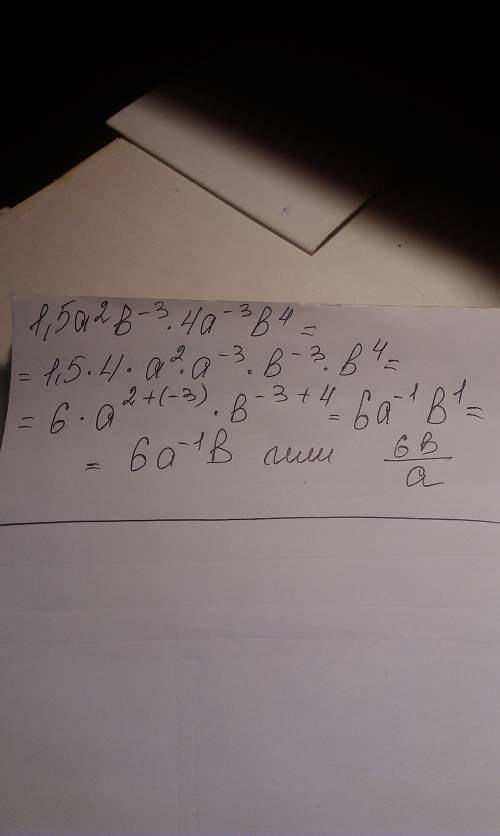 1,5a²b⁻³·4a⁻³b⁴=
=1,5·4·a²·a⁻³·b⁻³·b⁴=
=6·a²⁺⁽⁻³⁾·b⁻³⁺⁴=6a⁻¹b¹=
=6a⁻¹b или 6b/a